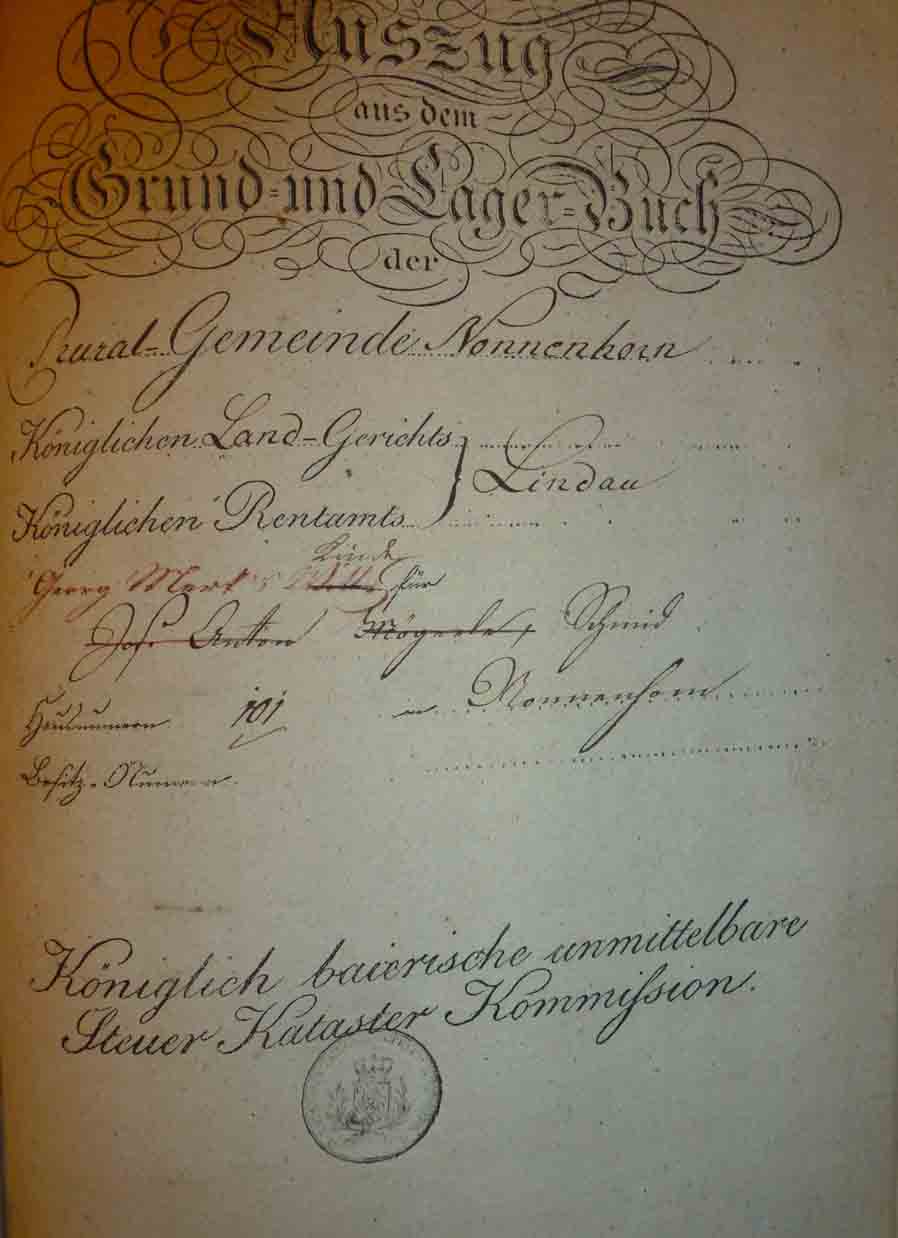 Auszug
aus dem
Grund- und Lager-Buch
der
Rural-Gemeinde Nonnenhorn
Königlichen Land-Gerichts
Lindau
Königlichen Rentamts
Kinder
Georg Merk's für
Jos. Anton Mögerle, Schmid
Hausnumern 101 in Nonnenhorn
Besitz-Numern
Königlich baierische unmittelbare
Steuer Kataster Kommission.